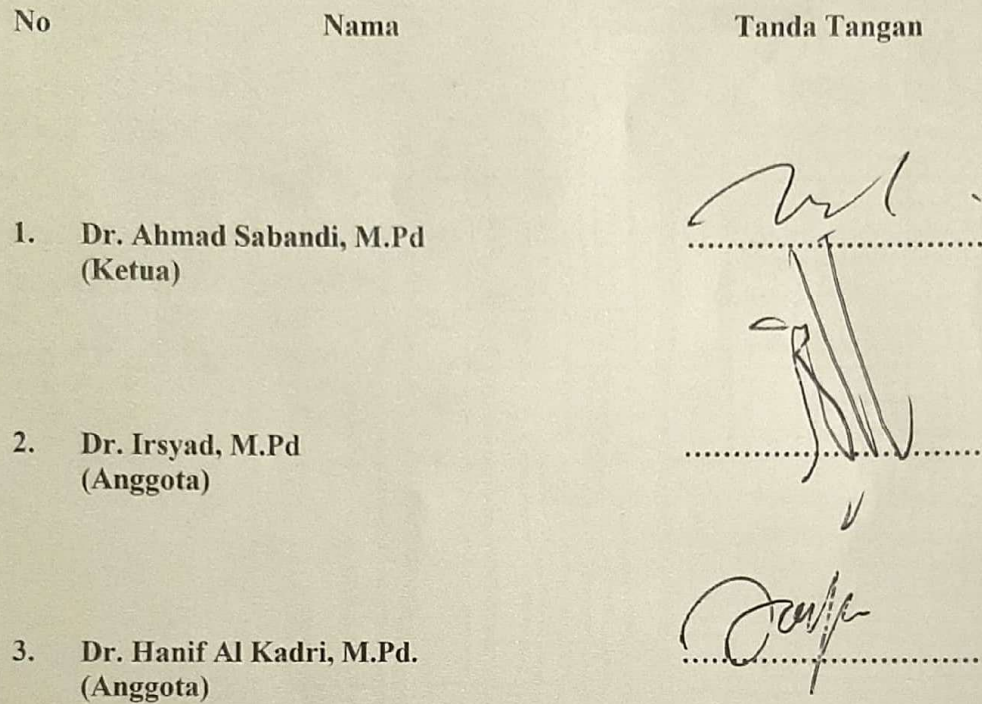 No Nama Tanda Tangan
1. Dr. Ahmad Sabandi, M.Pd
(Ketua)
2. Dr. Irsyad, M.Pd
(Anggota)
3. Dr. Hanif Al Kadri, M.Pd.
(Anggota)